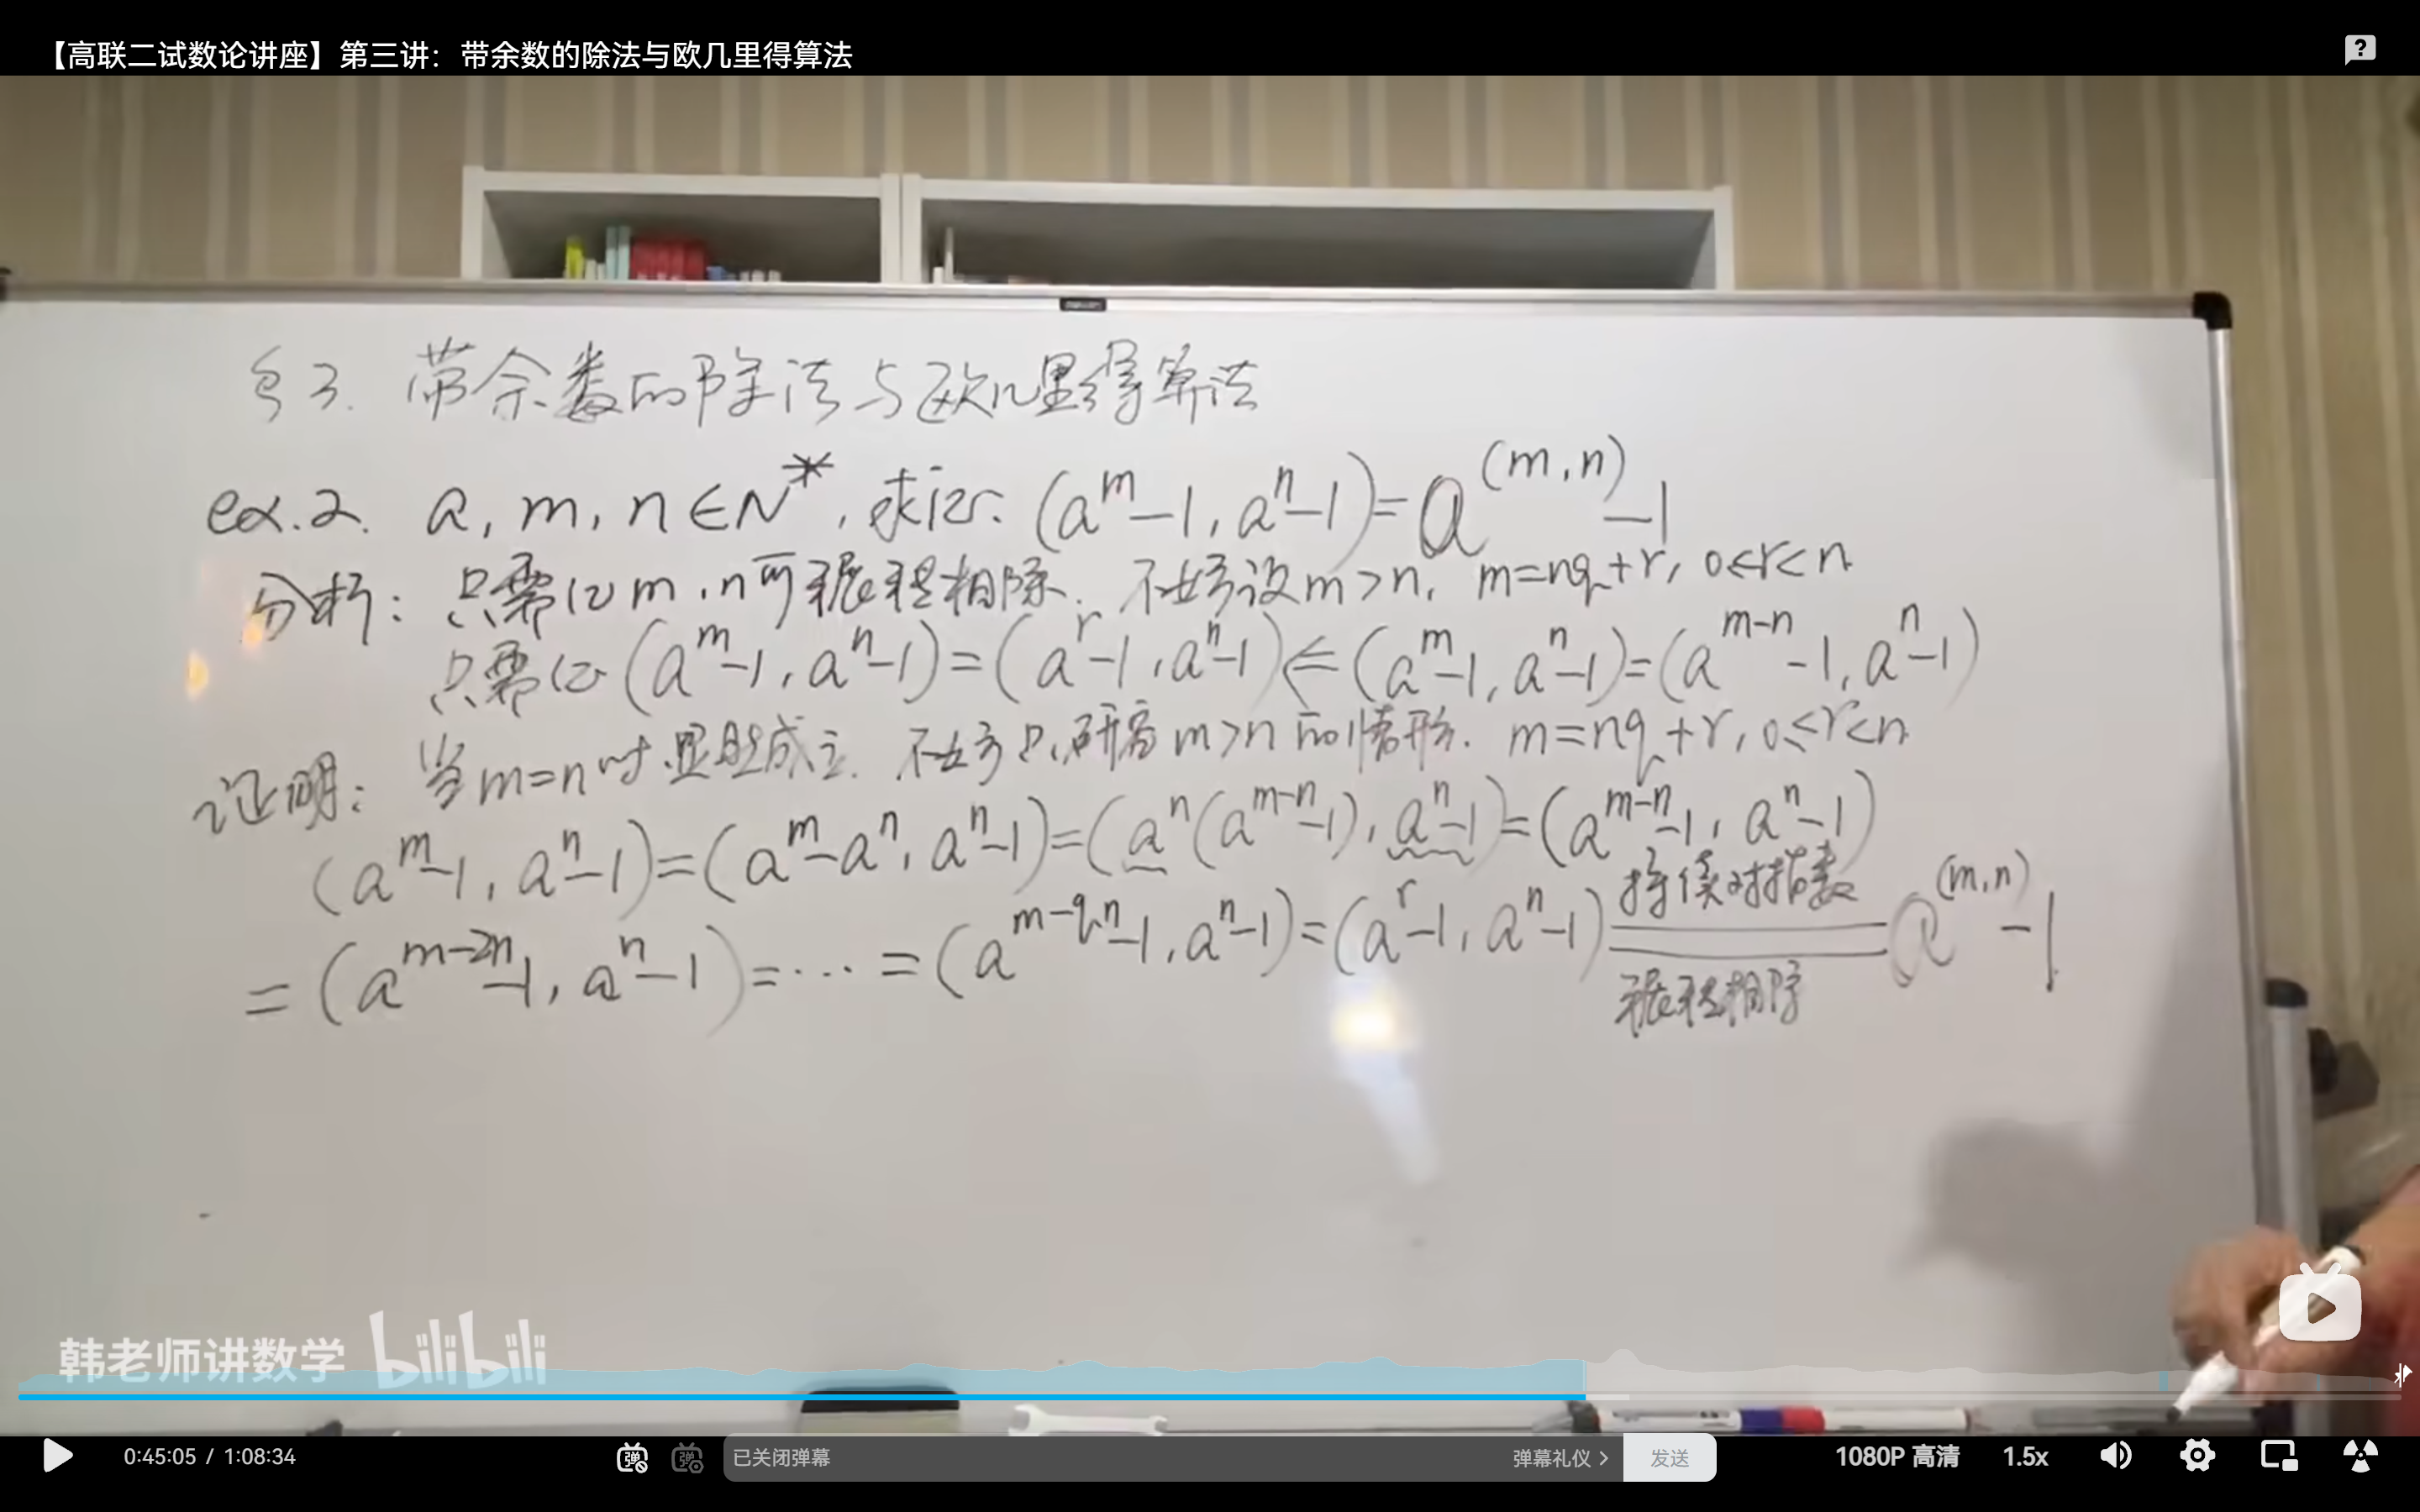 【高联二试数论讲座】第三讲：带余数的除法与欧几里得算法
§3. 带余数的除法与欧几里得算法
ex.2. a, m, n ∈ N*, 求证: (a^m-1, a^n-1) = a^(m,n) -1
分析: 只需证 m, n 可辗转相除. 不妨设 m>n, m=nq+r, 0≤r<n.
只需证 (a^m-1, a^n-1) = (a^r-1, a^n-1) ⇐ (a^m-1, a^n-1) = (a^(m-n)-1, a^n-1)
证明: 当 m=n 时显然成立. 不妨只研究 m>n 的情形. m=nq+r, 0≤r<n
(a^m-1, a^n-1) = (a^m-a^n, a^n-1) = (a^n(a^(m-n)-1), a^n-1) = (a^(m-n)-1, a^n-1)
= (a^(m-2n)-1, a^n-1) = ... = (a^(m-qn)-1, a^n-1) = (a^r-1, a^n-1) 持续对指数 辗转相除 = a^(m,n) -1
韩老师讲数学 bilibili
0:45:05 / 1:08:34
弹
弹
已关闭弹幕
弹幕礼仪 >
发送
1080P 高清
1.5x